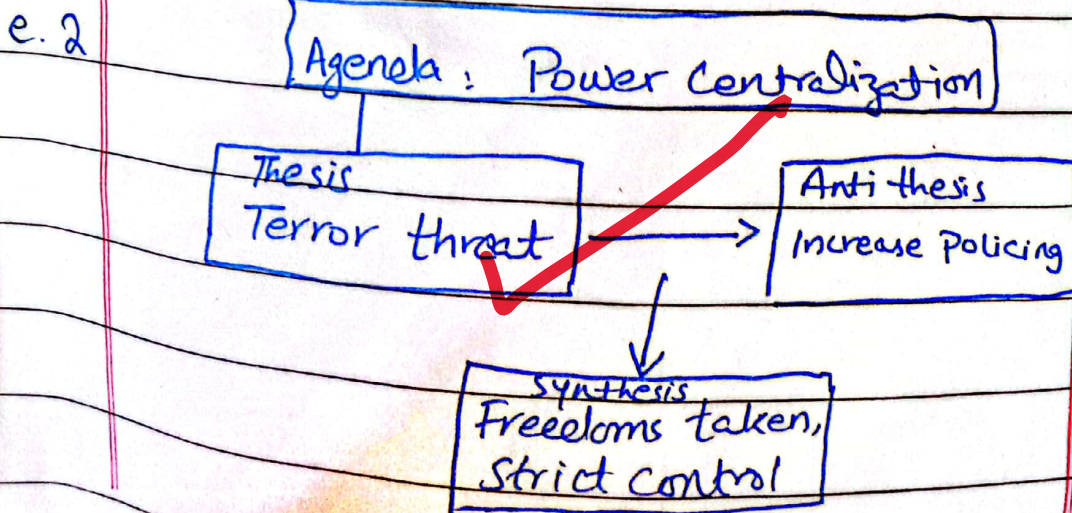 e. 2
Agenda : Power Centralization
Thesis
Terror threat
Anti thesis
Increase Policing
Synthesis
Freedoms taken,
Strict control